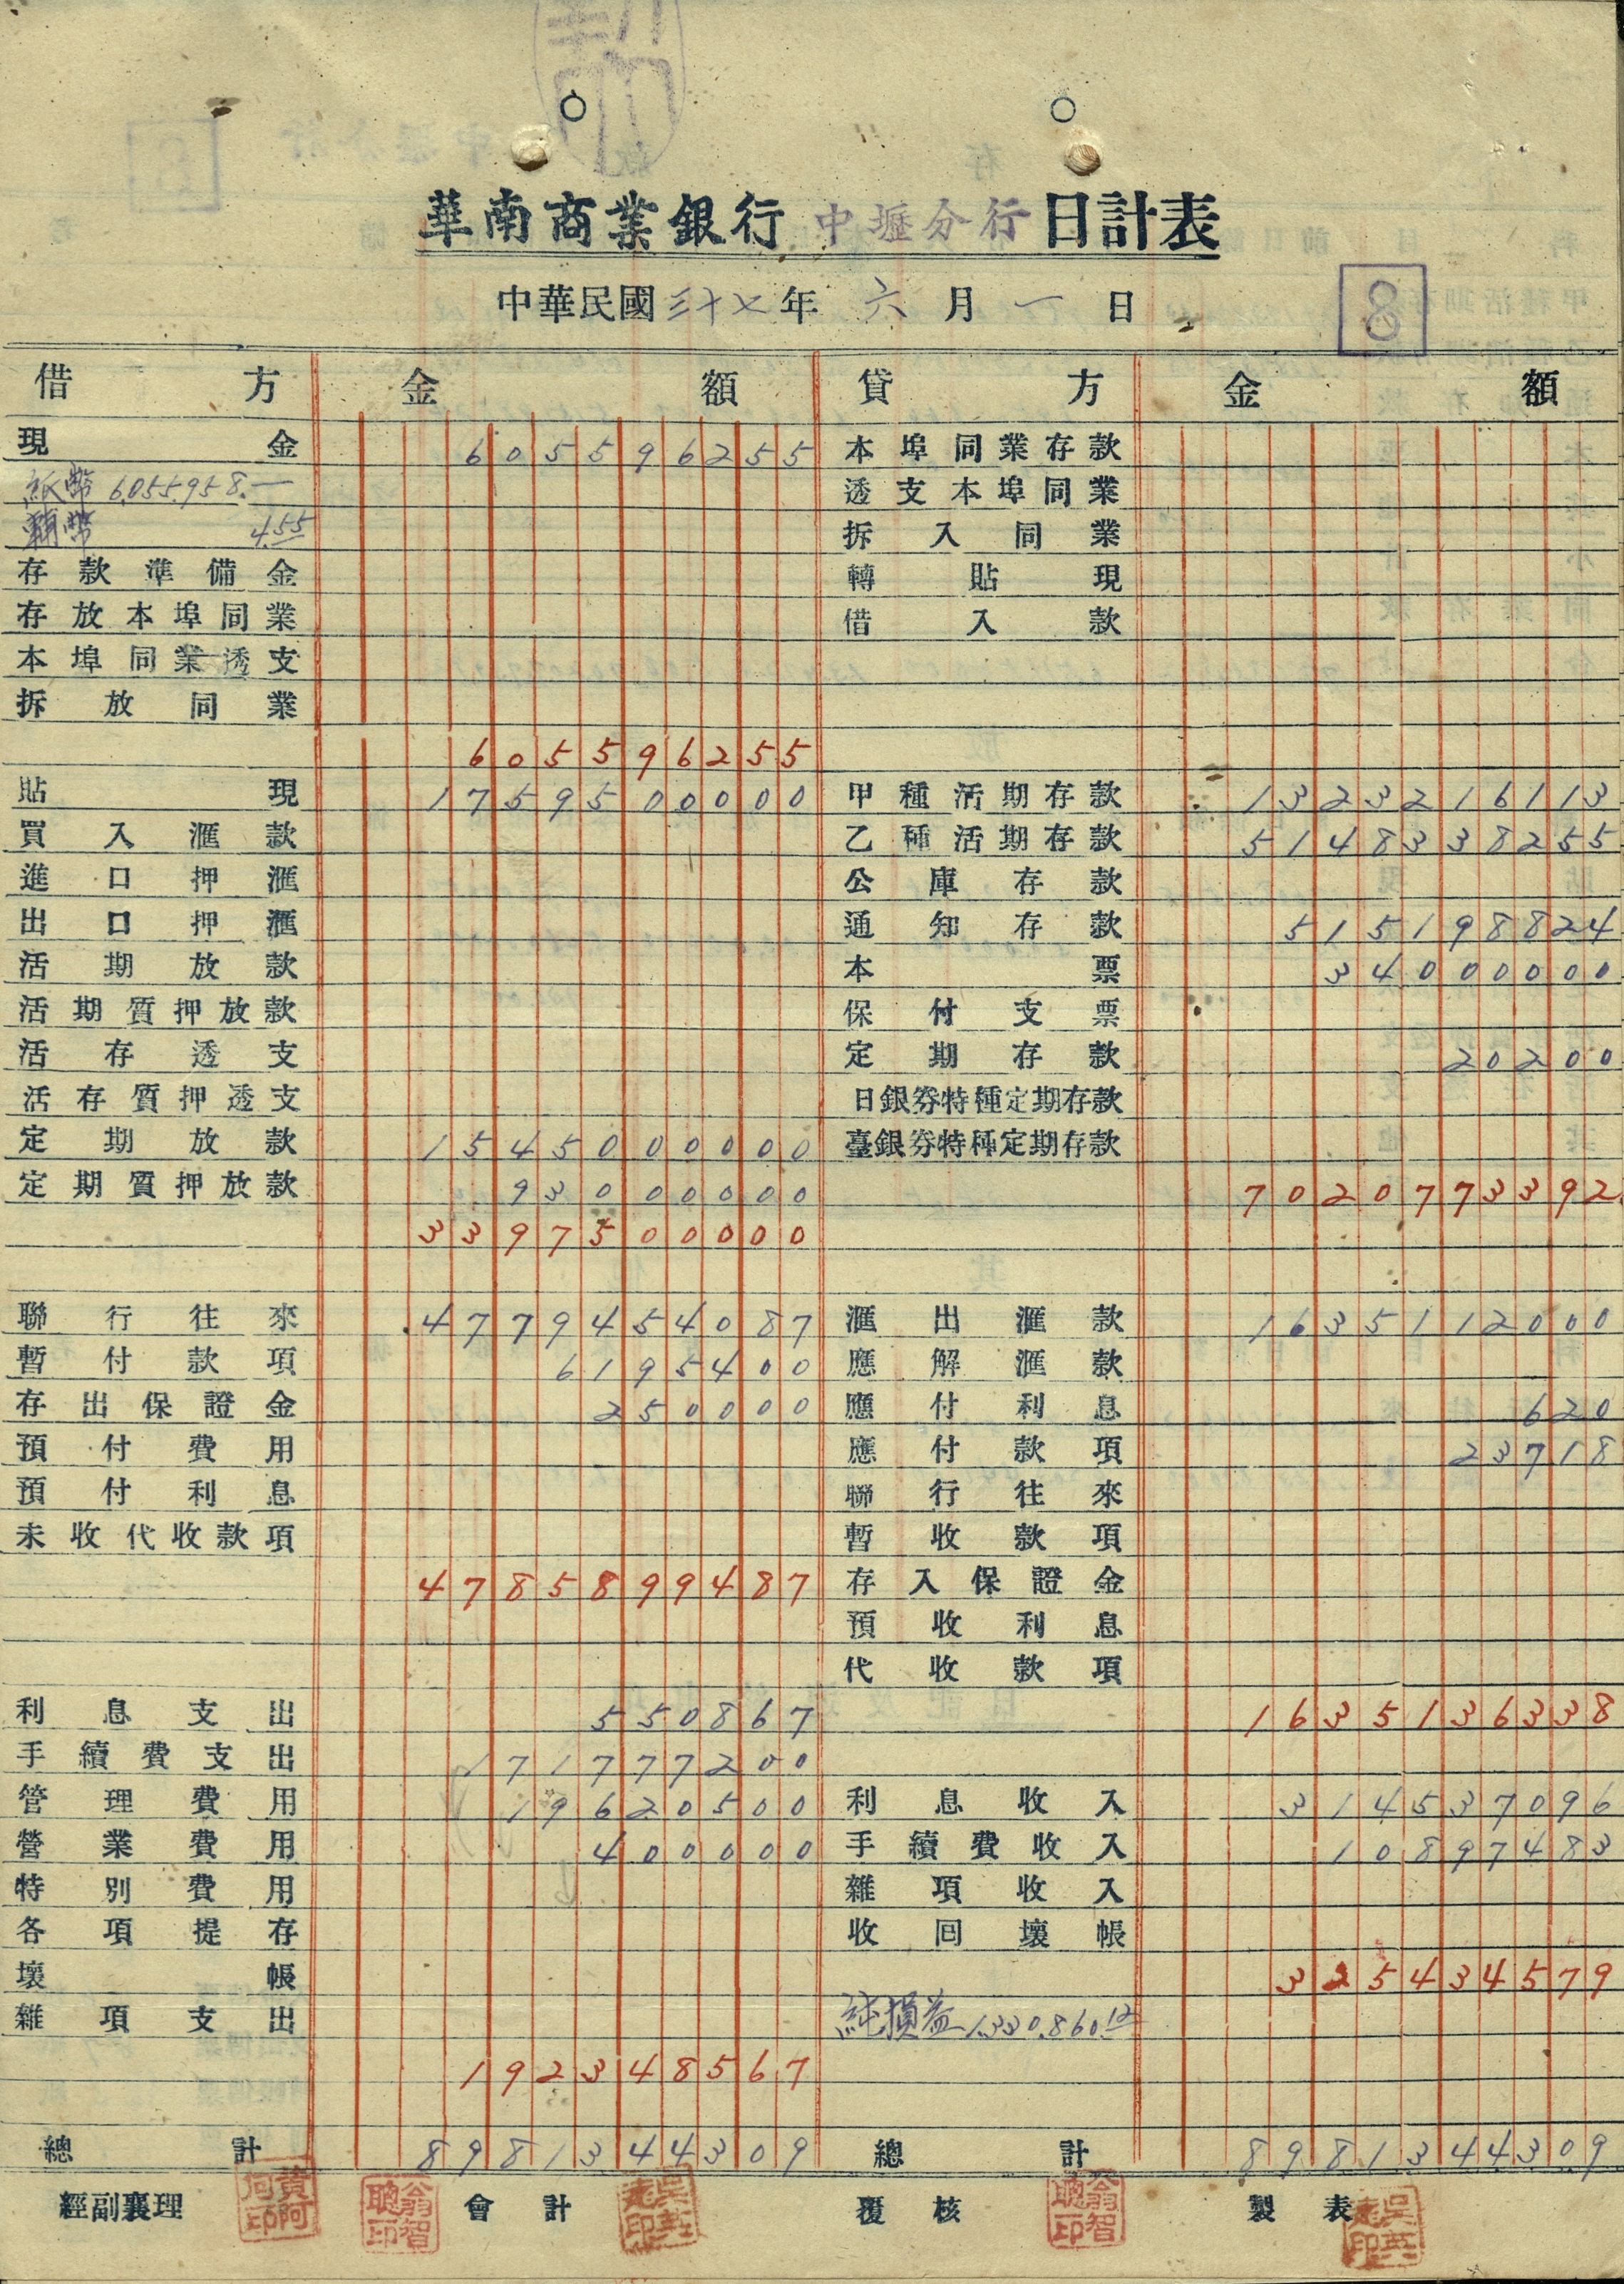 華南商業銀行 中壢分行 日計表
中華民國 三十七 年 六 月 一 日
8
借方 金額 貸方 金額
現金 605596255 本埠同業存款
紙幣 6,055,958.— 透支本埠同業
輔幣 4.55 拆入同業
存款準備金 轉貼現
存放本埠同業 借入款
本埠同業透支
拆放同業
605596255
貼現 1759500000 甲種活期存款 1323216113
買入滙款 乙種活期存款 5148338255
進口押滙 公庫存款
出口押滙 通知存款 515198824
活期放款 本票 34000000
活期質押放款 保付支票
活存透支 定期存款 20200
活存質押透支 日銀券特種定期存款
定期放款 1545000000 臺銀券特種定期存款
定期質押放款 93000000 7020773392
3397500000
聯行往來 4779454087 滙出滙款 1635112000
暫付款項 6195400 應解滙款
存出保證金 250000 應付利息 620
預付費用 應付款項 23718
預付利息 聯行往來
未收代收款項 暫收款項
4785899487 存入保證金
預收利息
代收款項
利息支出 550867 1635136338
手續費支出 171777200
管理費用 19620500 利息收入 314537096
營業費用 400000 手續費收入 10897483
特別費用 雜項收入
各項提存 收回壞帳
壞帳 325434579
雜項支出 純損益 1,330,860.12
192348567
總計 8981344309 總計 8981344309
經副襄理 會計 覆核 製表